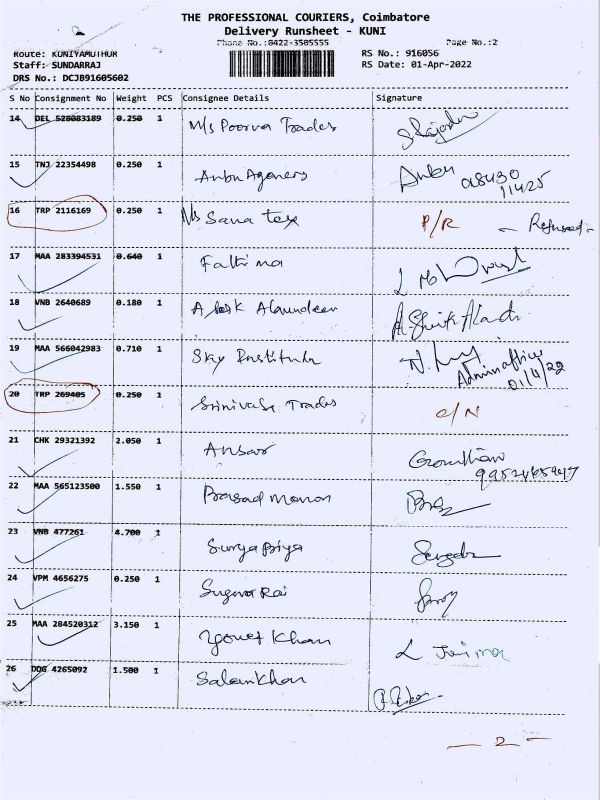 THE PROFESSIONAL COURIERS, Coimbatore
Delivery Runsheet - KUNI
Phone No.:0422-3505555 Page No.:2
Route: KUNIYAMUTHUR RS No.: 916056
Staff: SUNDARRAJ RS Date: 01-Apr-2022
DRS No.: DCJB91605602
S No Consignment No Weight PCS Consignee Details Signature
14 DEL 528083189 0.250 1 M/s Poorva Trades
15 TNJ 22354498 0.250 1 Anbu Agencies Anbu
16 TRP 2116169 0.250 1 M/s Sana tex P/R - Refused -
17 MAA 283394531 0.640 1 Fathima
18 VNB 2640689 0.180 1
19 MAA 566042983 0.710 1 Sky Admin office
01/4/22
20 TRP 269405 0.250 1 Srinivasa Trades C/N
21 CHK 29321392 2.050 1 Ansar
22 MAA 565123500 1.550 1 Prasad Menon
23 VNB 477261 4.700 1 Suryapriya
24 VPM 4656275 0.250 1 Suguna Rai
25 MAA 284520312 3.150 1 Khan
26 DDG 4265092 1.500 1 Salamkhan
- 2 -